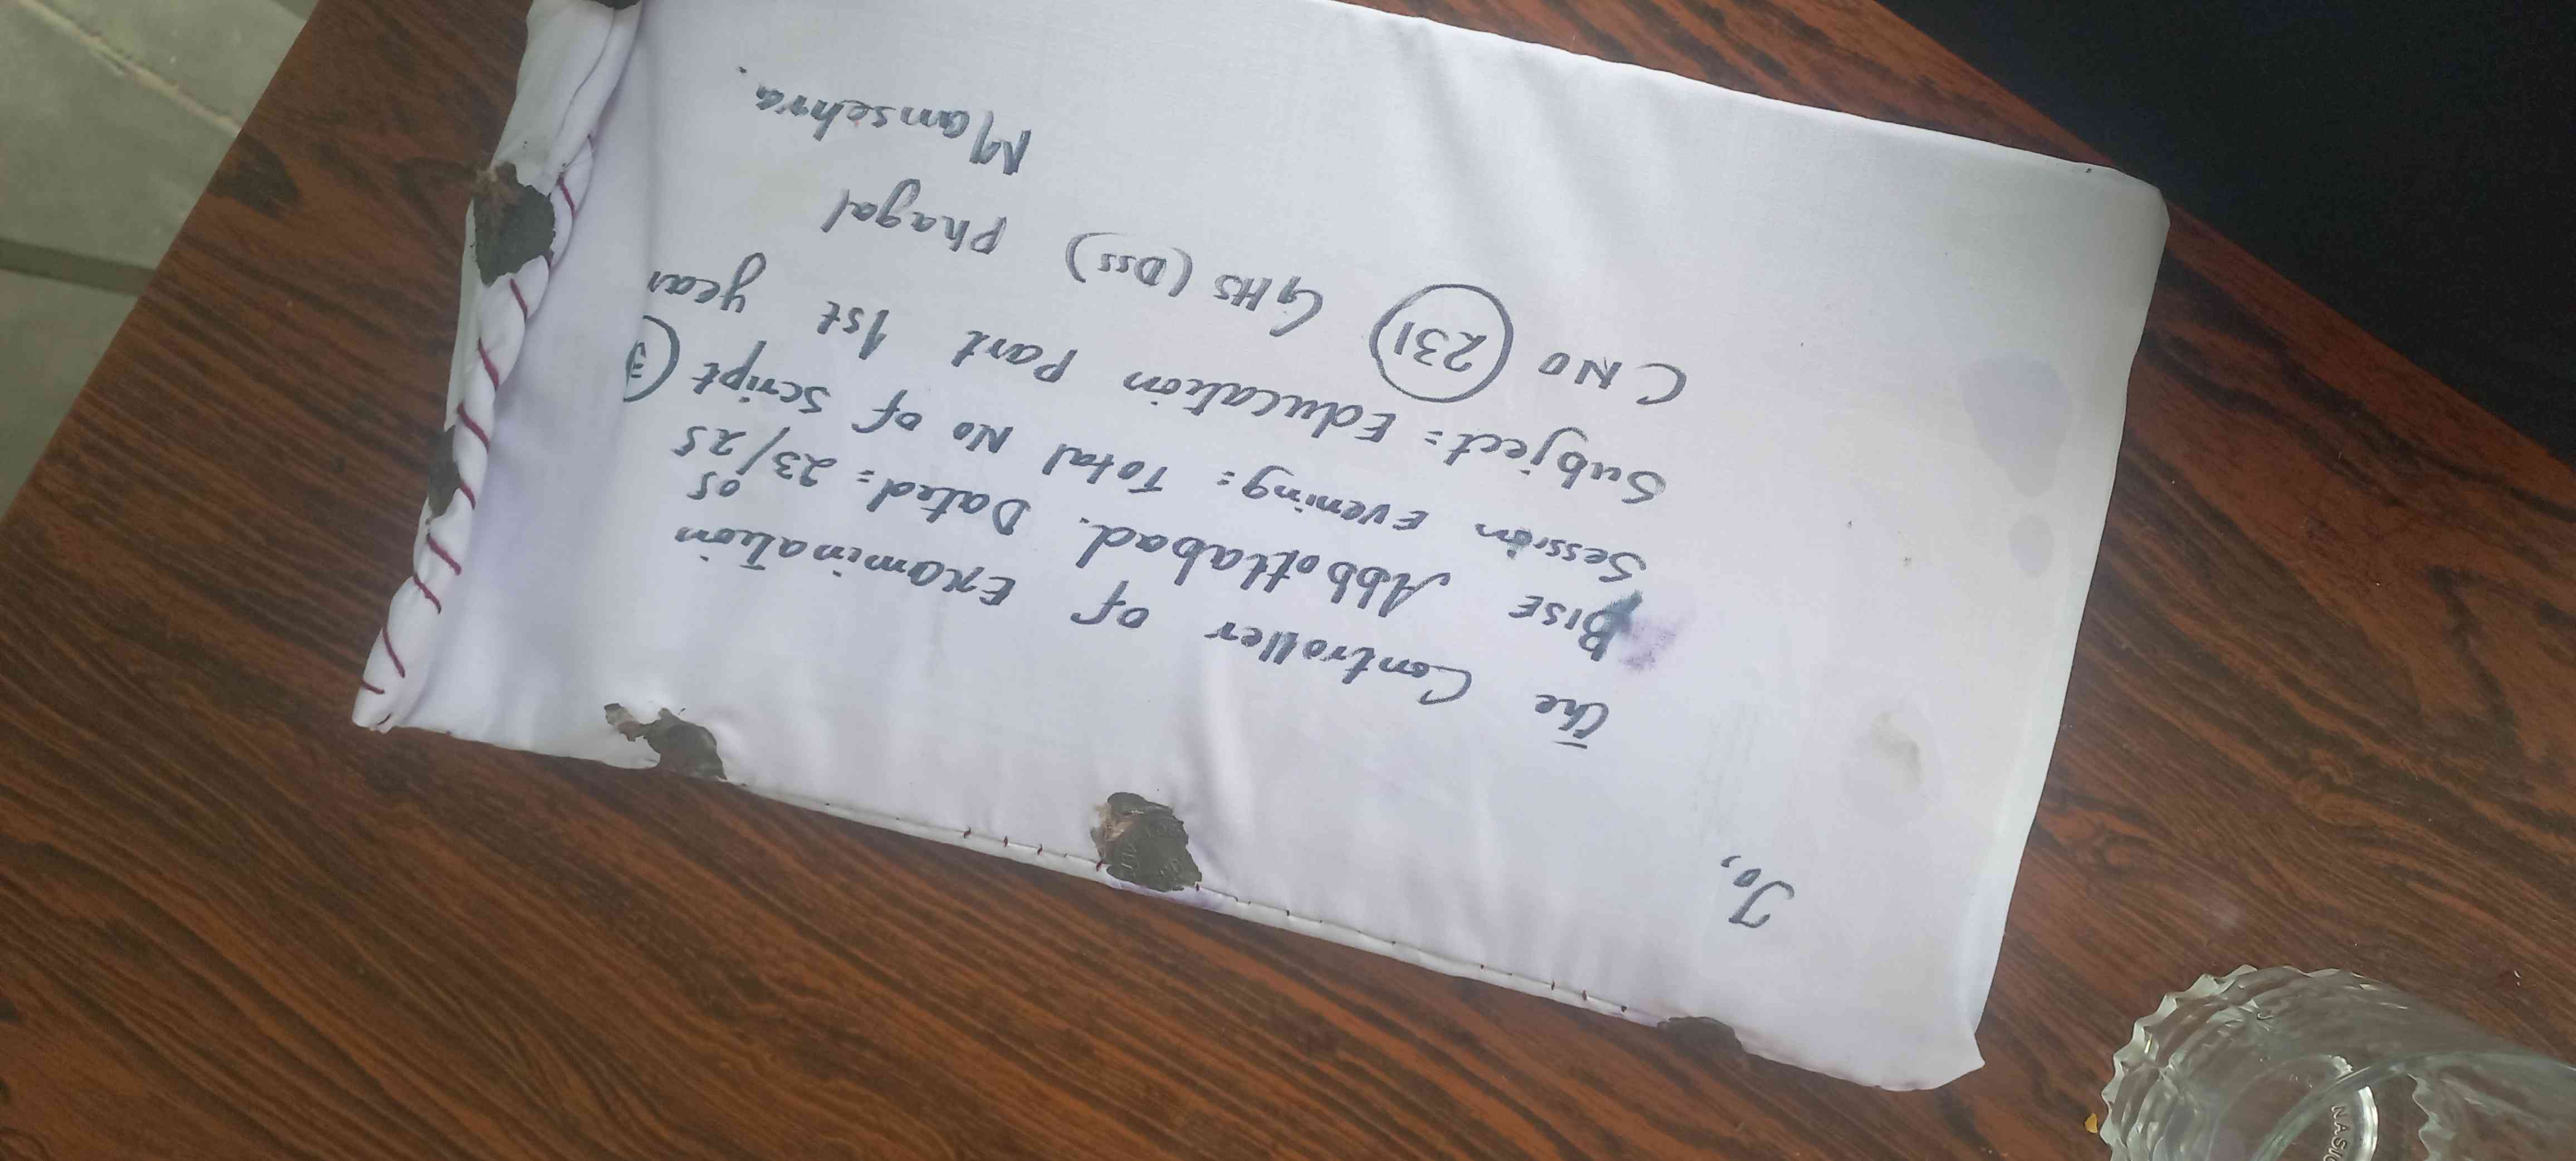 To,
The Controller of Examination
BISE Abbottabad. Dated: 23/05/25
Session Evening: Total No of Script 3
Subject: Education Part 1st year
C NO 231 GHS (Dss) Phagal
Mansehra.